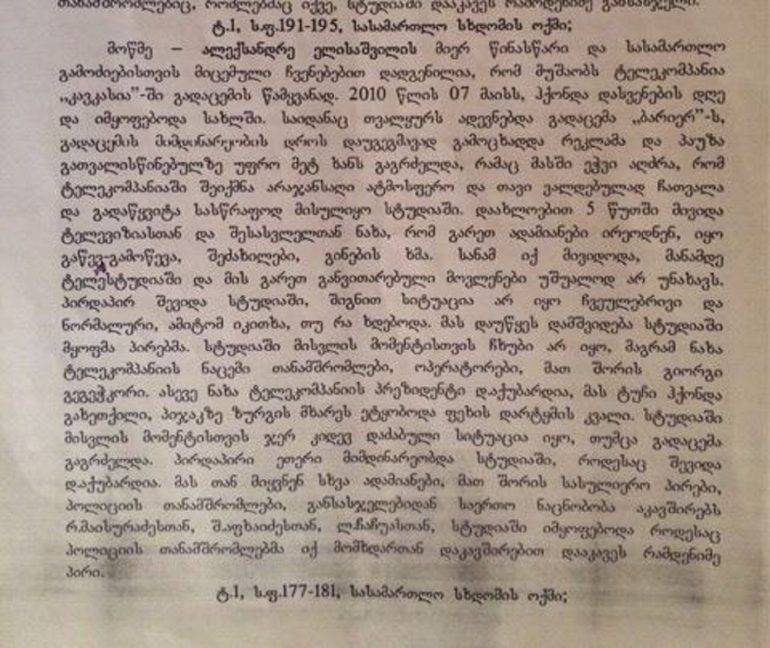 თანამშრომლებიც, რომლებმაც იქვე, სტუდიაში დააკავეს რამოდენიმე განსასჯელი.
ტ.1, ს.ფ.191-195, სასამართლო სხდომის ოქმი;
მოწმე – ალექსანდრე ელისაშვილის მიერ წინასწარი და სასამართლო
გამოძიებისთვის მიცემული ჩვენებებით დადგენილია, რომ მუშაობს ტელეკომპანია
,,კავკასია"-ში გადაცემის წამყვანად. 2010 წლის 07 მაისს, ჰქონდა დასვენების დღე
და იმყოფებოდა სახლში. საიდანაც თვალყურს ადევნებდა გადაცემა ,,ბარიერ"-ს,
გადაცემის მიმდინარეობის დროს დაუგეგმავად გამოცხადდა რეკლამა და პაუზა
გათვალისწინებულზე უფრო მეტ ხანს გაგრძელდა, რამაც მასში ეჭვი აღძრა, რომ
ტელეკომპანიაში შეიქმნა არაჯანსაღი ატმოსფერო და თავი ვალდებულად ჩათვალა
და გადაწყვიტა სასწრაფოდ მისულიყო სტუდიაში. დაახლოებით 5 წუთში მივიდა
ტელევიზიასთან და შესასვლელთან ნახა, რომ გარეთ ადამიანები ირეოდნენ, იყო
გაწევ-გამოწევა, შეძახილები, გინების ხმა. სანამ იქ მივიდოდა, მანამდე
ტელესტუდიაში და მის გარეთ განვითარებული მოვლენები უშუალოდ არ უნახავს.
პირდაპირ შევიდა სტუდიაში, შიგნით სიტუაცია არ იყო ჩვეულებრივი და
ნორმალური, ამიტომ იკითხა, თუ რა ხდებოდა. მას დაუწყეს დამშვიდება სტუდიაში
მყოფმა პირებმა. სტუდიაში მისვლის მომენტისთვის ჩხუბი არ იყო, მაგრამ ნახა
ტელეკომპანიის ნაცემი თანამშრომლები, ოპერატორები, მათ შორის გიორგი
გეგეჭკორი. ასევე ნახა ტელეკომპანიის პრეზიდენტი დ.აქუბარდია, მას ტუჩი ჰქონდა
გახეთქილი, პიჯაკზე ზურგის მხარეს ეტყობოდა ფეხის დარტყმის კვალი. სტუდიაში
მისვლის მომენტისთვის ჯერ კიდევ დაძაბული სიტუაცია იყო, თუმცა გადაცემა
გაგრძელდა. პირდაპირი ეთერი მიმდინარეობდა სტუდიაში, როდესაც შევიდა
დ.აქუბარდია. მას თან მიყვნენ სხვა ადამიანები, მათ შორის სასულიერო პირები,
პოლიციის თანამშრომლები, განსასჯელებიდან საერთო ნაცნობობა აკავშირებს
რ.მაისურაძესთან, შ.აფხაიძესთან, ლ.ჩაჩუასთან, სტუდიაში იმყოფებოდა როდესაც
პოლიციის თანამშრომლებმა იქ მომხდართან დაკავშირებით დააკავეს რამდენიმე
პირი.
ტ.1, ს.ფ.177-181, სასამართლო სხდომის ოქმი;